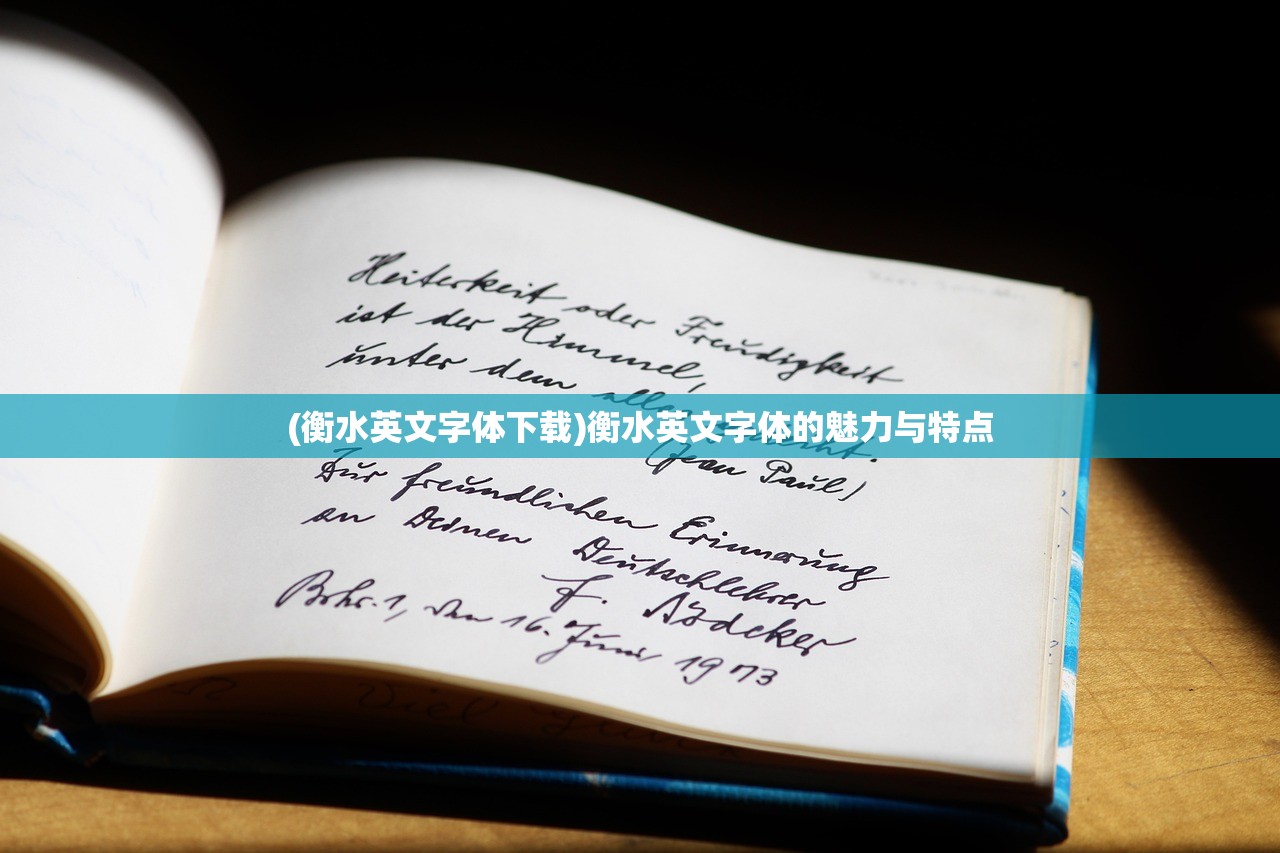 Heiterkeit oder Freudigkeit
ist der Himmel,
unter dem alles
(衡水英文字体下载)衡水英文字体的魅力与特点
(Jean Paul)
Zur freundlichen Erinnerung
an Deinen Deutschlehrer
F.
den 16. Juni 1973